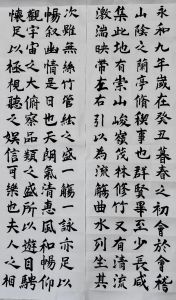 永和九年歲在癸丑暮春之初會於會稽
山陰之蘭亭脩稧事也群賢畢至少長咸
集此地有崇山峻嶺茂林修竹又有清流
激湍映帶左右引以為流觴曲水列坐其
次雖無絲竹管絃之盛一觴一詠亦足以
暢敘幽情是日也天朗氣清惠風和暢仰
觀宇宙之大俯察品類之盛所以遊目騁
懷足以極視聽之娛信可樂也夫人之相